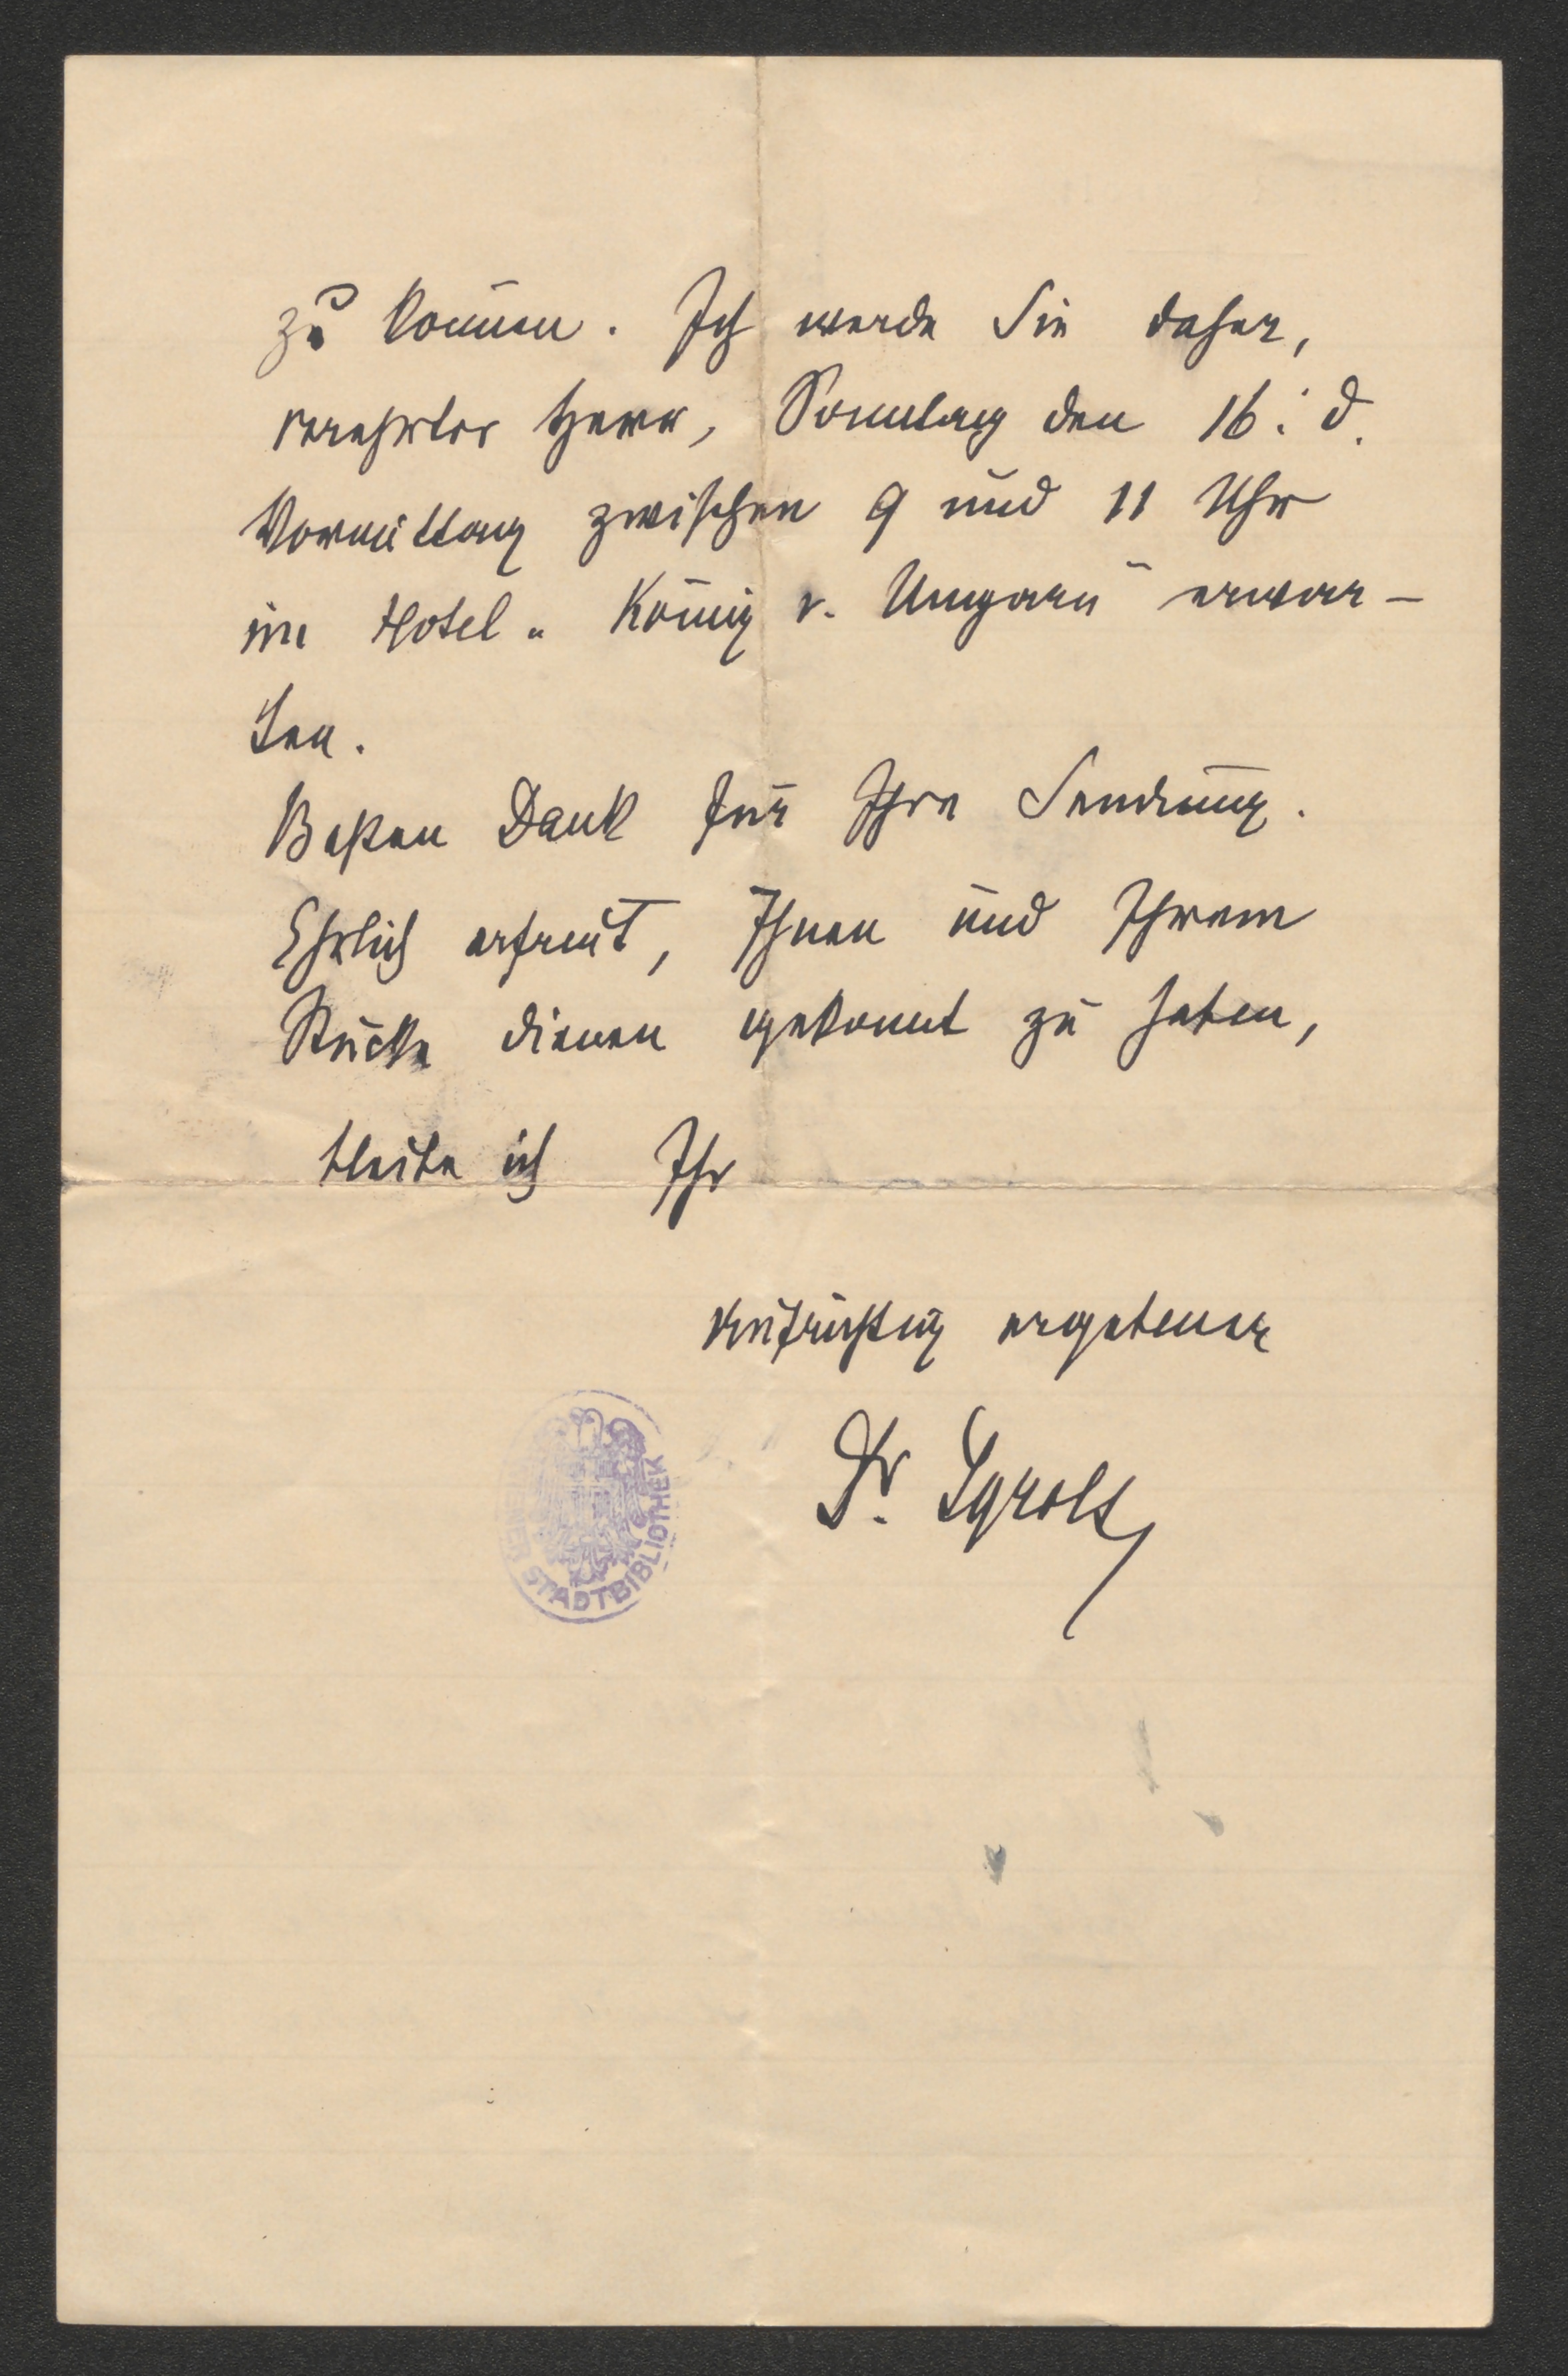 zu kommen. Ich werde Sie daher,
verehrter Herr, Sonntag den 16. d.
Vormittag zwischen 9 und 11 Uhr
im Hotel „König v. Ungarn" erwar-
ten.
Besten Dank für Ihre Sendung.
Ehrlich erfreut, Ihnen und Ihrem
Stücke dienen gekonnt zu haben,
bleibe ich Ihr
aufrichtig ergebener
Dr.
WIENER STADTBIBLIOTHEK